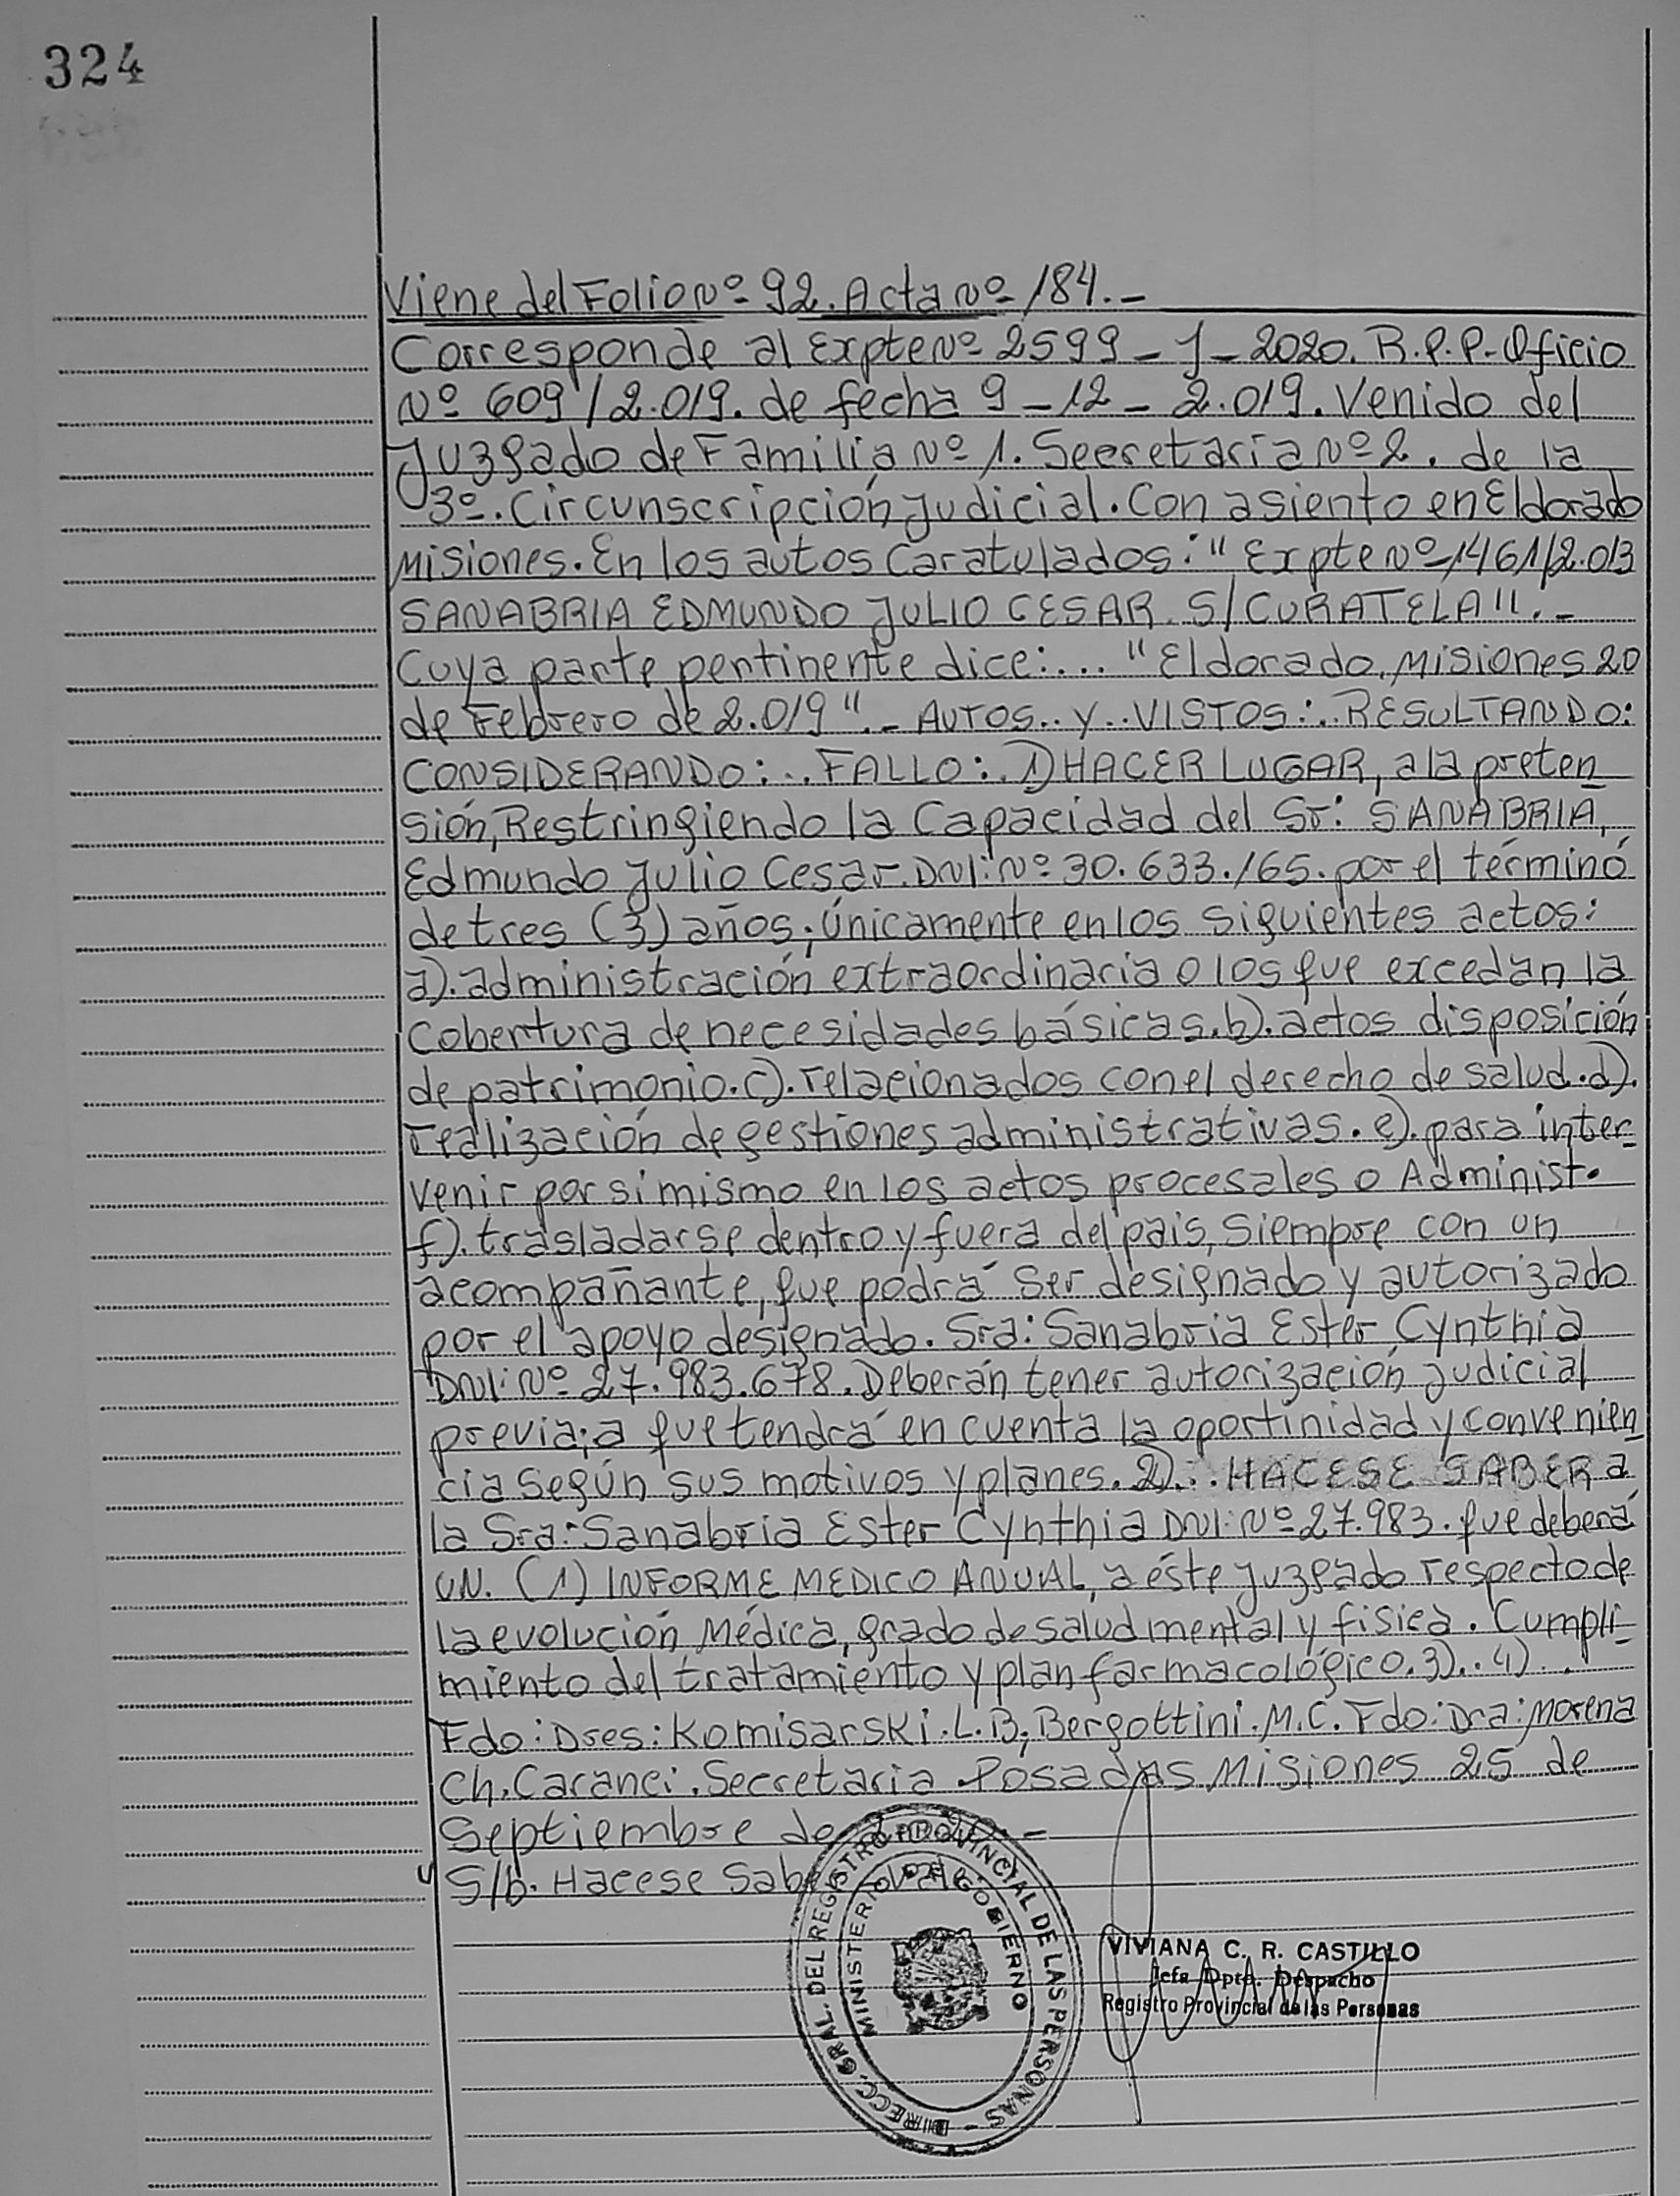 324
Viene del Folio Nº 92. Acta Nº 184.-
Corresponde al Expte Nº 2599-J-2020. R.P.P-Oficio
Nº 609/2.019. de fecha 9-12-2.019. Venido del
Juzgado de Familia Nº 1. Secretaria Nº 2. de la
3º. Circunscripción Judicial. Con asiento en Eldorado
Misiones. En los autos Caratulados: "Expte Nº 1461/2.013
SANABRIA EDMUNDO JULIO CESAR. S/CURATELA".-
Cuya parte pentinente dice:... "Eldorado, Misiones 20
de Febrero de 2.019".- AUTOS.. Y.. VISTOS:.. RESULTANDO:
CONSIDERANDO:.. FALLO:. 1) HACER LUGAR, a la preten
sión, Restringiendo la Capacidad del Sr: SANABRIA,
Edmundo Julio Cesar. DNI: Nº 30.633.165. por el término
de tres (3) años; únicamente en los siguientes actos:
a). administración extraordinaria o los que excedan la
Cobertura de necesidades básicas. b). actos disposición
de patrimonio. c). relacionados con el derecho de salud. d).
realización de gestiones administrativas. e). para inter-
venir por si mismo en los actos procesales o Administ.
f). trasladarse dentro y fuera del pais, Siempre con un
acompañante, que podrá ser designado y autorizado
por el apoyo designado. Sra: Sanabria Ester Cynthia
DNI: Nº 27.983.678. Deberán tener autorización Judicial
previa; a que tendrá en cuenta la oportinidad y convenien
cia Según sus motivos y planes. 2)... HACESE SABER a
la Sra: Sanabria Ester Cynthia DNI: Nº 27.983. que deberá
UN. (1) INFORME MEDICO ANUAL, a éste Juzgado respecto de
la evolución Médica, grado de salud mental y fisica. Cumpli-
miento del tratamiento y plan farmacológico. 3)..4)...
Fdo: Dres: Komisarski. L.B; Bergottini. M.C. Fdo: Dra: Morena
Ch. Caranci. Secretaria Posadas Misiones 25 de
Septiembre de
S/b. Hacese Saber Vale
DIRECC. GRAL. DEL REGISTRO PROVINCIAL DE LAS PERSONAS
MINISTERIO DE GOBIERNO
VIVIANA C. R. CASTILLO
Jefa Dpto. Despacho
Registro Provincial de las Personas